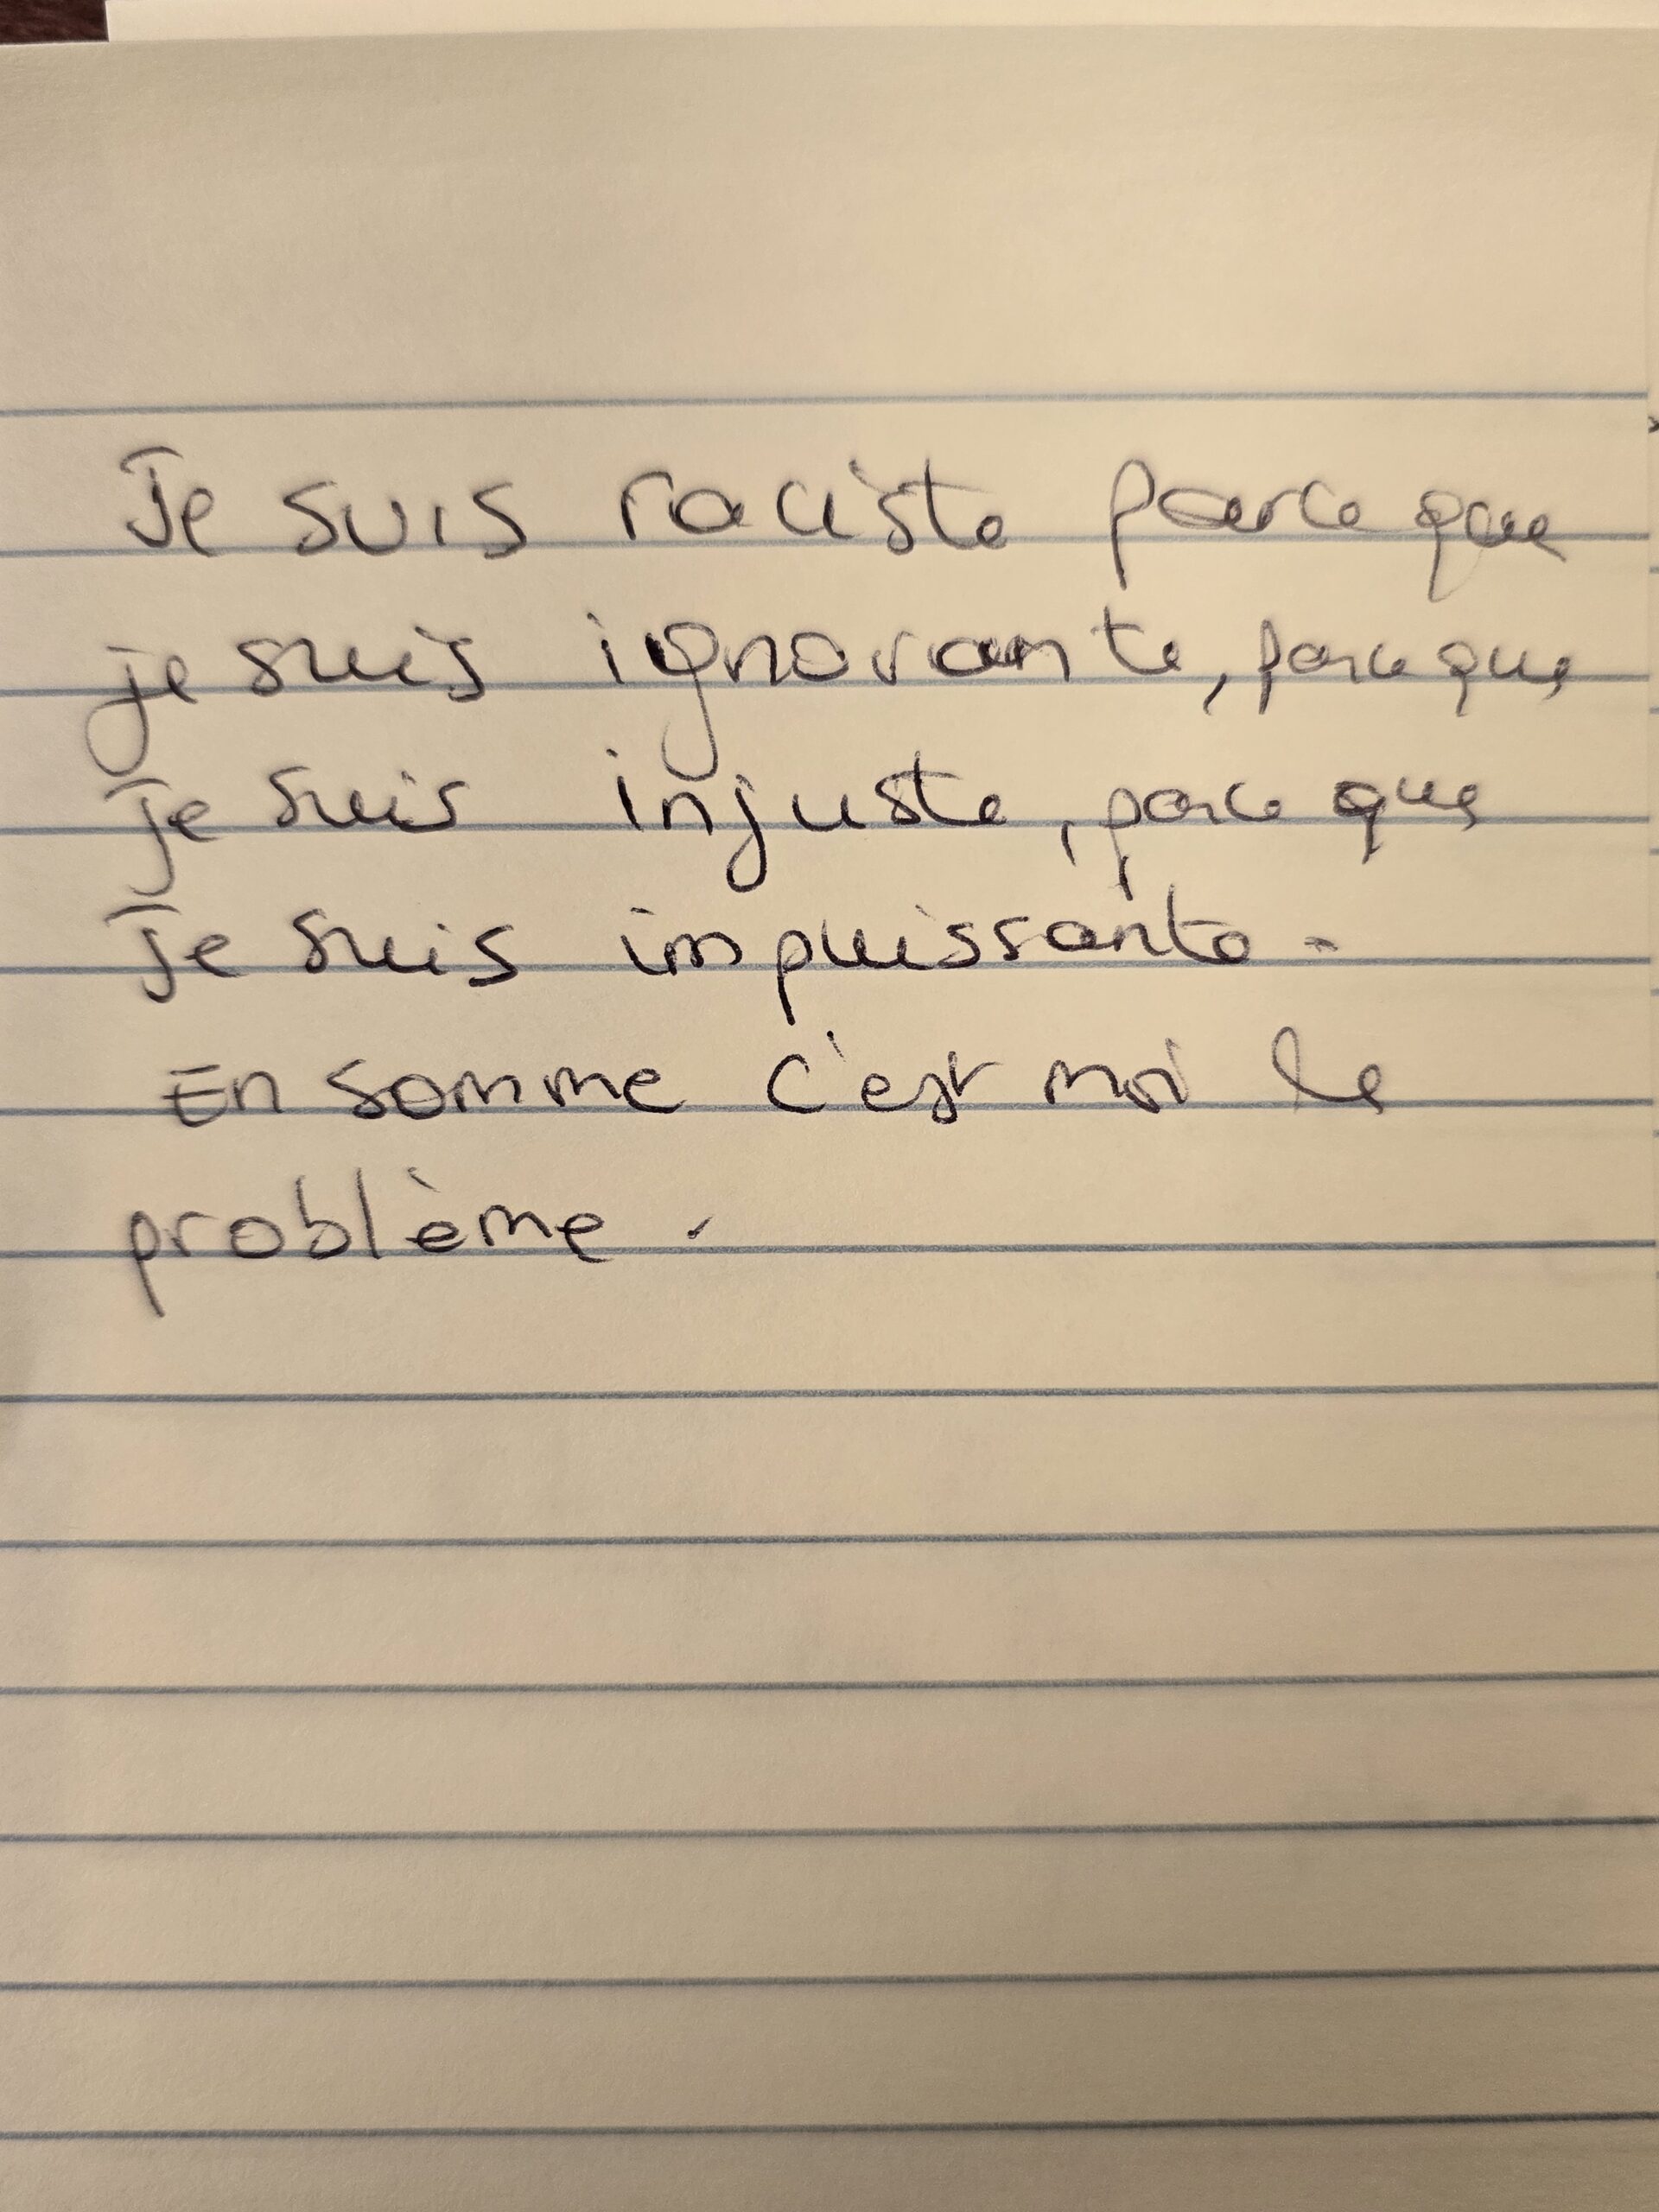 Je suis raciste parce que
je suis ignorante, parce que
Je suis injuste, parce que
Je suis impuissante.
En somme c'est moi le
problème.